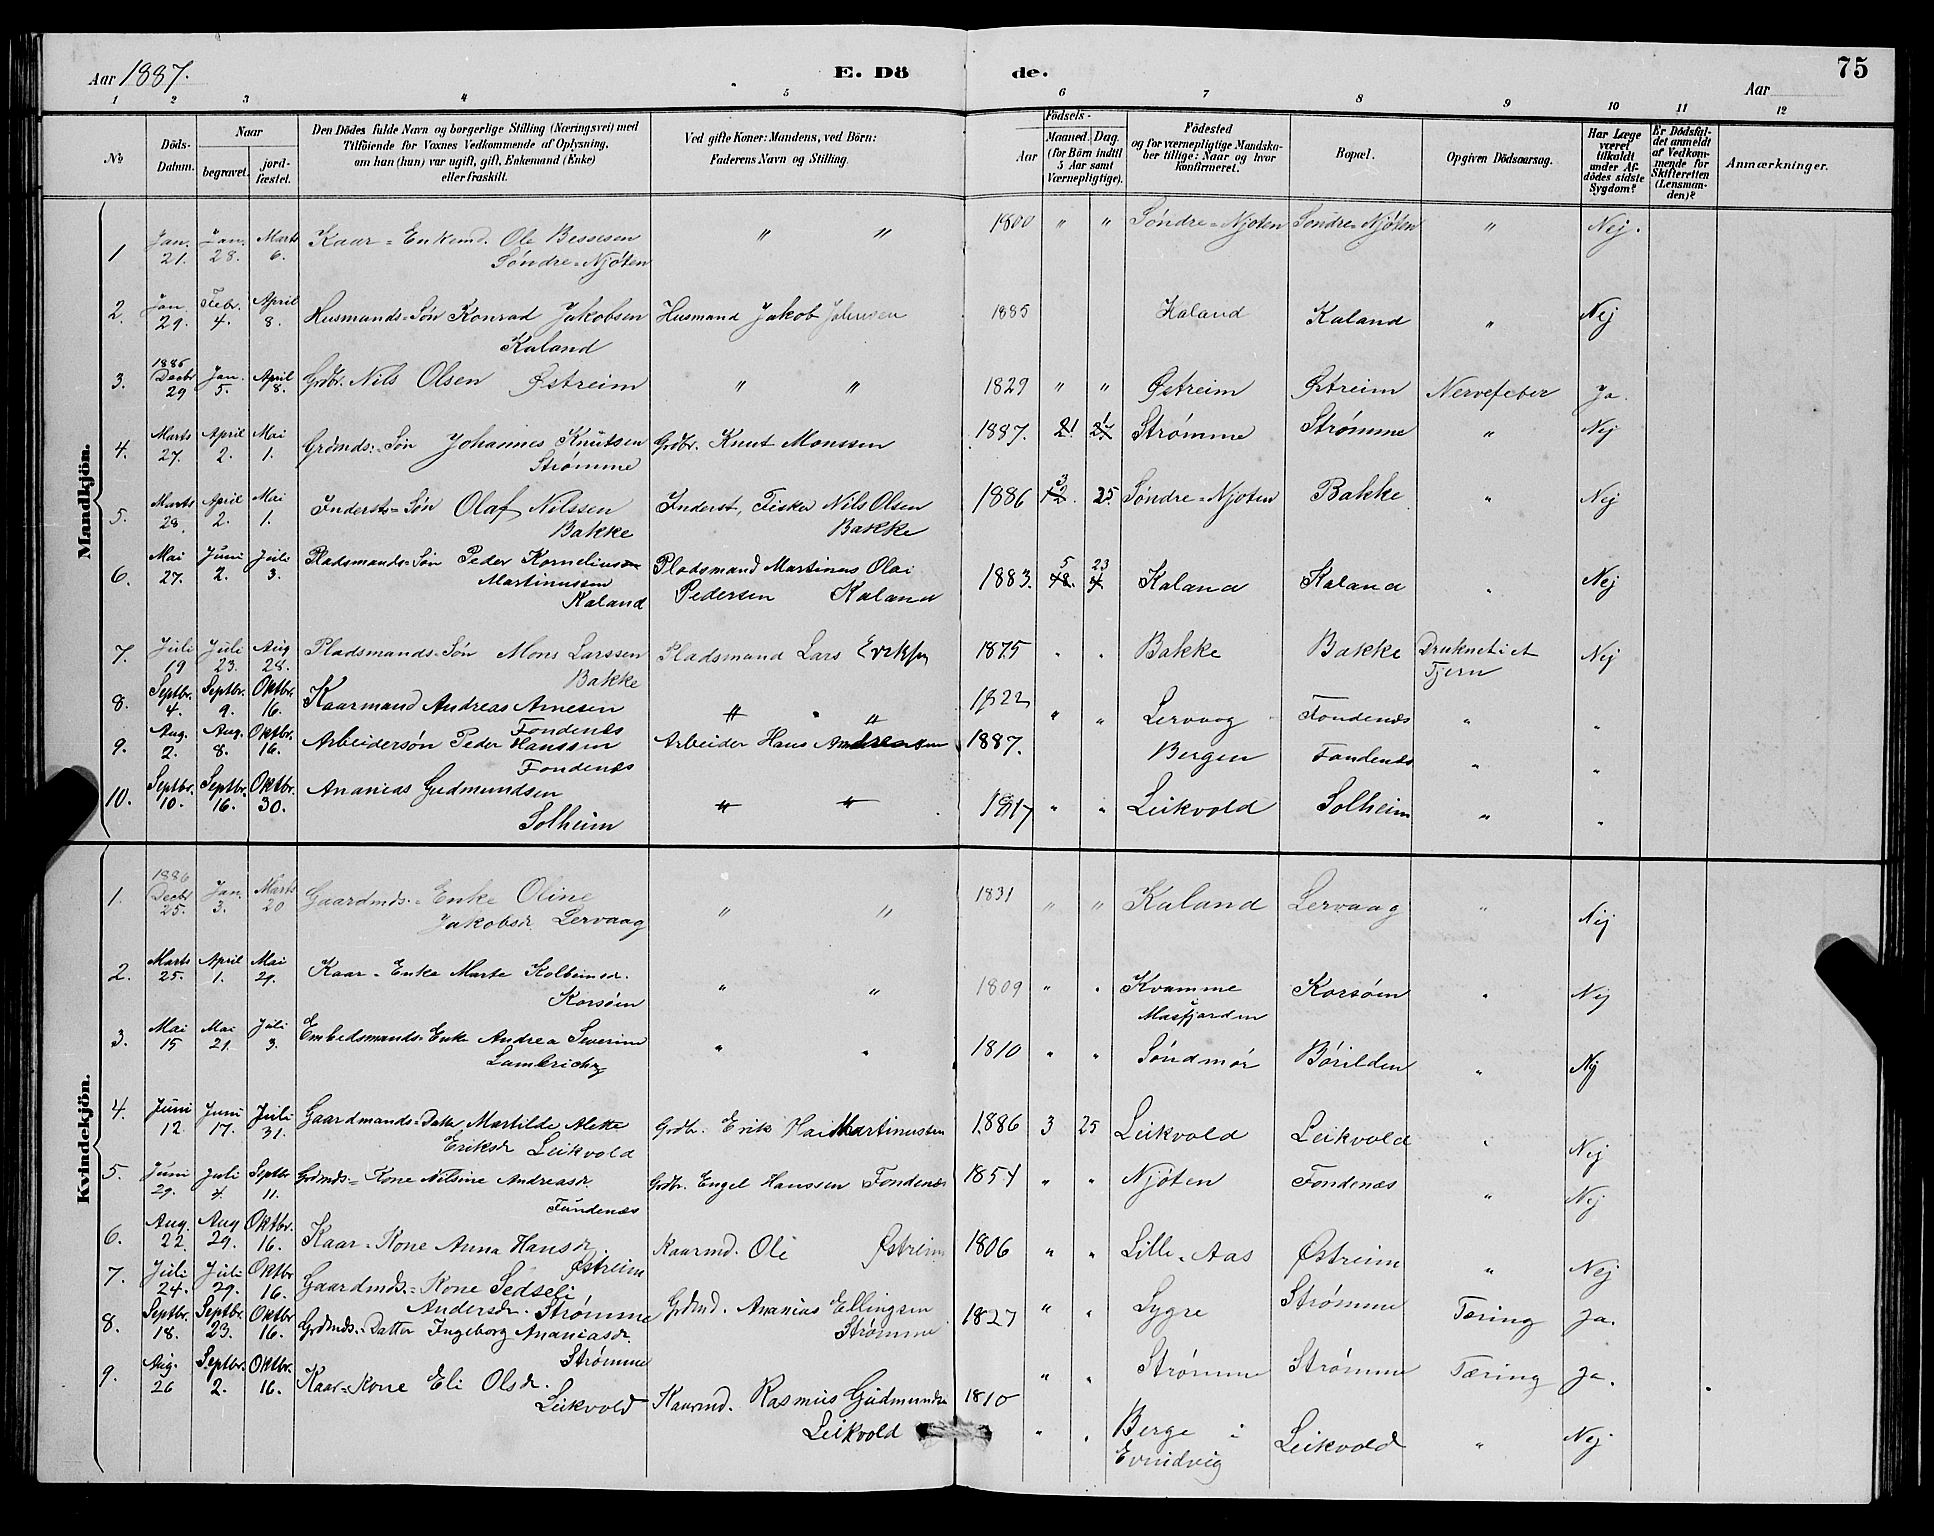 Aar 1887. E. Dö de. Aar 75
1 2 3 4 5 6 7 8 9 10 11 12
No Döds-Datum. Naar begravet. jordfæstet. Den Dödes fulde Navn og borgerlige Stilling (Næringsvei) med Tilföiende for Voxnes Vedkommende af Oplysning, om han (hun) var ugift, gift, Enkemand (Enke) eller fraskilt. Ved gifte Koner: Mandens, ved Börn: Faderens Navn og Stilling. Födsels- Aar Maaned. Dag. (for Börn indtil 5 Aar samt Værnepligtige). Födested og for værnepligtige Mandskaber tillige: Naar og hvor konfirmeret. Bopæl. Opgiven Dödsaarsag. Har Læge været tilkaldt under Afdödes sidste Sygdom? Er Dödsfaldet anmeldt af Vedkommende for Skifteretten (Lensmanden)? Anmærkninger.
Mandkjön.
1 Jan. 21. Jan. 28. Marts 6. Kaar-Enkemd. Ole Bessesen Söndre-Njöten " " 1800 " " Söndre-Njöten Söndre-Njöten " Nej.
2. Jan. 29. Febr. 4. April 8. Husmands-Sön Konrad Jakobsen Kaland Husmand Jakob 1885 Kaland Kaland " Nej
3. 1886 Decbr 29 Jan. 5. April 8. Grdbr. Nils Olsen Østreim " " 1829 " " Østreim Østreim Nervefeber Ja.
4. Marts 27. April 2. Mai 1. Grdmds:-Sön Johannes Knutsen Strømme Grdbr. Knut Monssen 1887. Strømme Strømme " Nej
5. Marts 28. April 2. Mai 1. Inderst-Sön Olaf Nilssen Bakke Inderst, Fisker Nils Olsen Bakke 1886 3 25 Söndre-Njöten Bakke " Nej
6. Mai 27. Juni 2. Juli 3. Pladsmands-Sön Peder Kornelius Martinussen Kaland Pladsmand Martinus Olai Pedersen Kaland 1883. 5 23 Kaland Kaland " Nej
7. Juli 19 Juli 23. Aug 28. Pladsmands-Sön Mons Larssen Bakke Pladsmand Lars 1875 " " Bakke Bakke Druknet i et Tjern Nej
8. Septbr. 4. Septbr. 9. Oktbr. 16. Kaarmand Andreas Arnesen Fondenes " " 1822 " " Lervaag Fondenæs " "
9. Aug. 2. Aug. 8. Oktbr. 16. Arbeidersön Peder Hanssen Fondenæs Arbeider Hans Andreassen 1887. Bergen Fondenæs " "
10. Septbr. 10. Septbr. 16. Oktbr. 30. Ananias Gudmundsen Solheim " " 1817 " " Leikvold Solheim " "
Kvindekjön.
1. 1886 Decbr 25. Jan. 3. Marts 20 Gaardmds.-Enke Oline Jakobsdr. Lervaag " " 1831 " " Kaland Lervaag " Nej
2. Marts 25. April 1. Mai 29. Kaar-Enke Marte Kolbeinsdr. Korsöen " " 1809 " " Kvamme Masfjorden Korsöen " Nej
3. Mai 15 Mai 21. Juli 3. Embedsmands-Enke Andrea Severine " " 1810 " " Söndmör Börilden " Nej
4. Juni 12. Juni 17. Juli 31. Gaardmands-Datter Martilde Aleke Eriksdr Leikvold Grdbr. Erik Martinussen 1886 3 25 Leikvold Leikvold " Nej
5. Juni 29. Juli 4. Septbr 11. Grdmds-Kone Nilsine Andreasdr Fundenæs Grdbr. Engel Hanssen Fondenæs 1854 " " Njöten Fondenæs " Nej
6. Aug. 22. Aug 29. Oktbr. 16. Kaar-Kone Anna Hansdr Østreim Kaarmd. Ole Østreim 1806 " " Lille-Aas Østreim " Nej
7. Juli 24. Juli 29. Oktbr 16. Gaardmds.-Kone Sedseli Andersdr. Strømme Grdmd. Ananias Ellingsen Strømme 1827 " " Sygre Strømme Tæring Ja.
8. Septbr. 18. Septbr. 23. Oktbr 16. Grdmds.-Datter Ingeborg Ananiasdr. Strømme " " Strømme Strømme Tæring Ja.
9. Aug. 26 Septbr. 2. Oktbr. 16. Kaar-Kone Eli Olsdr. Leikvold Kaarmd. Rasmus Gudmundsen Leikvold 1810 " " Berge i Evindvig Leikvold " Nej